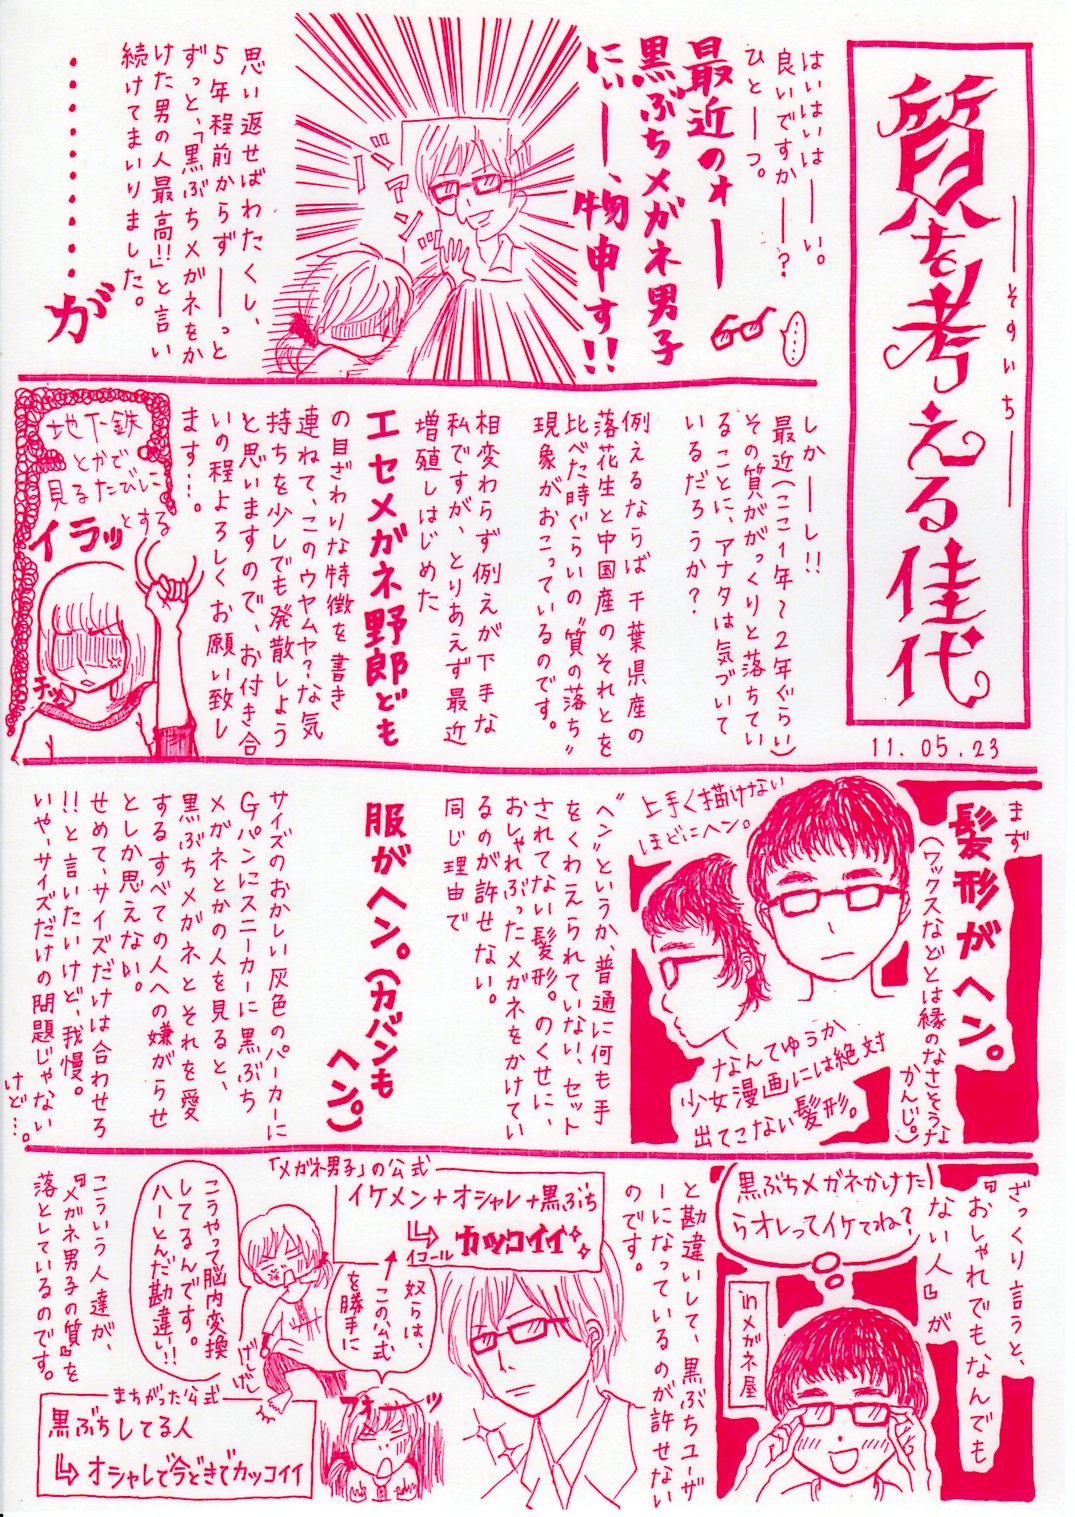 質を考える佳代
――そのいち――
11.05.23
はいはいはーーい。
良いですかーー?
ひとーーつ。
最近のォーー
黒ぶちメガネ男子
にぃーー、物申す!!
……
バァァンッ
思い返せばわたくし、
5年程前からずーーっと
ずっと、「黒ぶちメガネをか
けた男の人最高!!」と言い
続けてまいりました。
・・・・・・・・が
しかーーし!!
最近(ここ1年〜2年ぐらい)
その質ががっくりと落ちてい
ることに、アナタは気づいて
いるだろうか?
例えるならば千葉県産の
落花生と中国産のそれとを
比べた時ぐらいの〝質の落ち〟
現象がおこっているのです。
相変わらず例えが下手な
私ですが、とりあえず最近
増殖しはじめた
エセメガネ野郎ども
の目ざわりな特徴を書き
連ねて、このウヤムヤ?な気
持ちを少しでも発散しよう
と思いますので、お付き合
いの程よろしくお願い致し
ます…。
地下鉄
とかで
見るたびに
イラッとする
チッ
まず
髪形がヘン。
(ワックスなどとは縁のなさそうな
かんじ。)
上手く描けない
ほどにヘン。
なんてゆうか
少女漫画には絶対
出てこない髪形。
〝ヘン〟というか、普通に何も手
をくわえられていない、セット
されてない髪形。のくせに、
おしゃれぶったメガネをかけてい
るのが許せない。
同じ理由で
服がヘン。(カバンも
ヘン。)
サイズのおかしい灰色のパーカーに
Gパンにスニーカーに黒ぶち
メガネとかの人を見ると、
黒ぶちメガネとそれを愛
するすべての人への嫌がらせ
としか思えない。
せめて、サイズだけは合わせろ
!!と言いたいけど、我慢。
いや、サイズだけの問題じゃない
けど…。
ざっくり言うと、
『おしゃれでも、なんでも
ない人』が
黒ぶちメガネかけた
らオレってイケてね?
inメガネ屋
と勘違いして、黒ぶちユーザ
ーになっているのが許せない
のです。
「メガネ男子」の公式
イケメン+オシャレ+黒ぶち
イコール
カッコイイ
奴らは、
この公式
を勝手に
フォーーッ
こうやって脳内変換
してるんです。
ハーとんだ勘違い!!
げしげし
まちがった公式
黒ぶちしてる人
オシャレで今どきでカッコイイ
こういう人達が、
『メガネ男子の質』を
落としているのです。